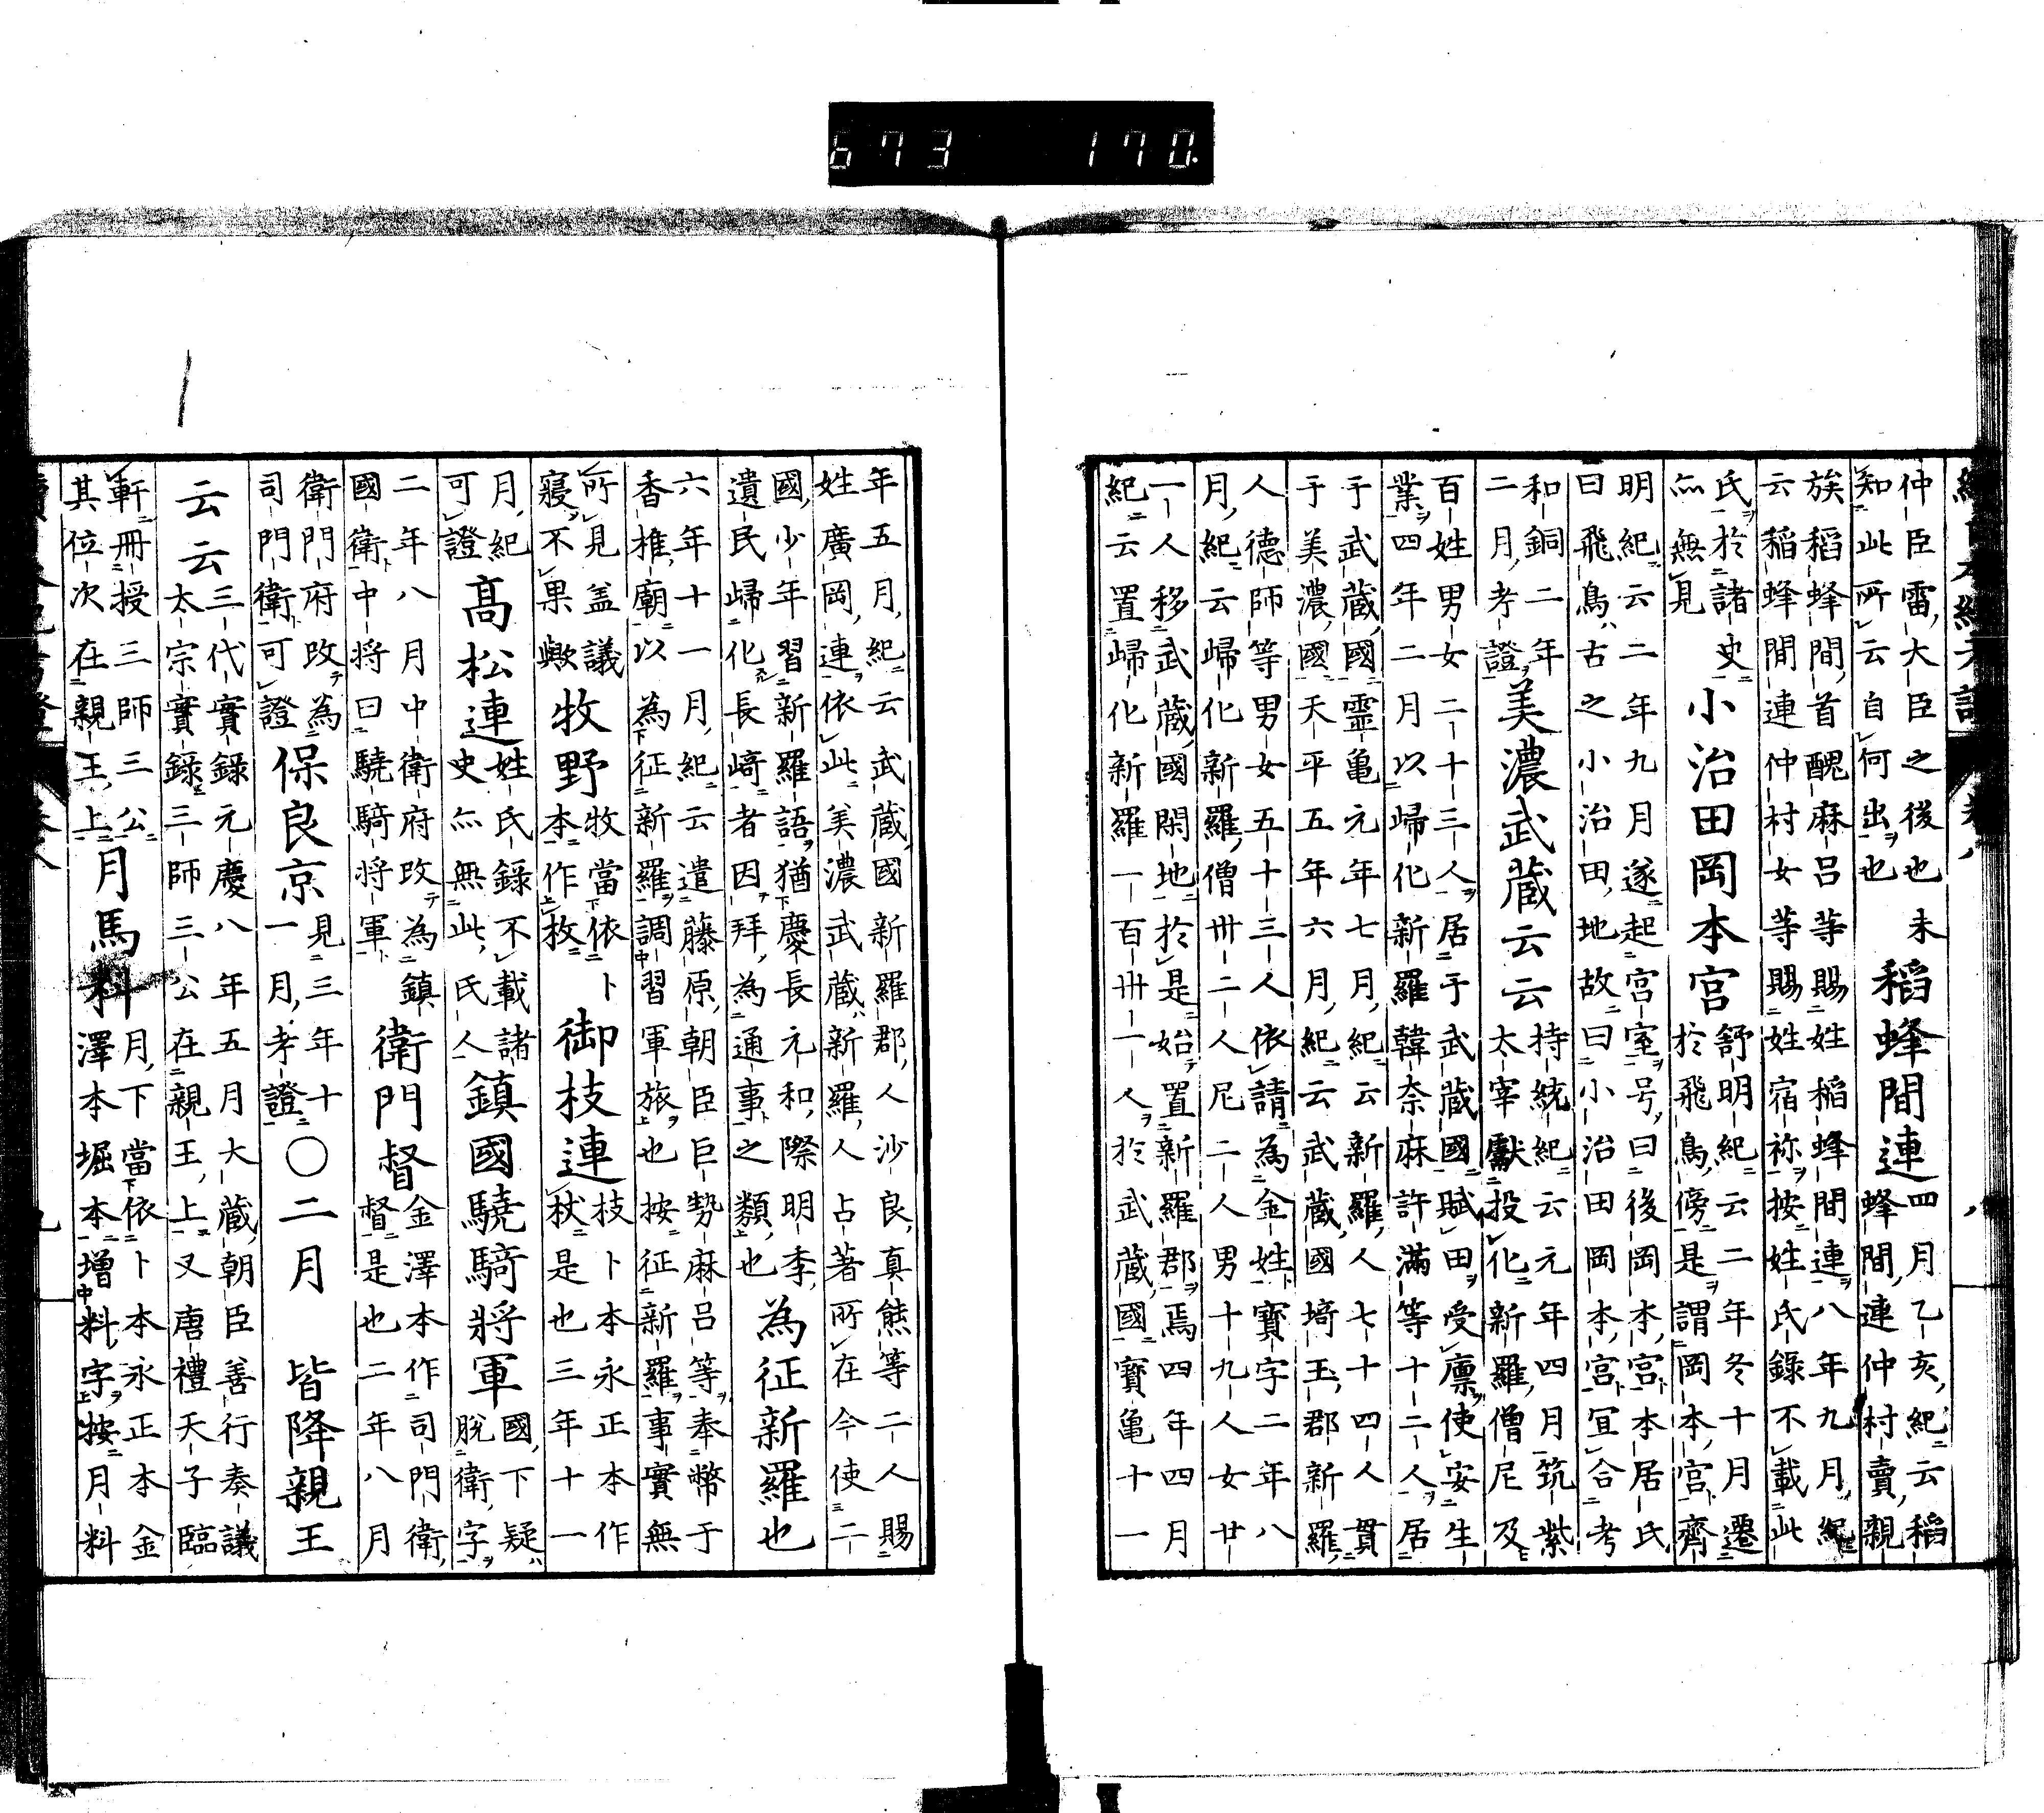 673 170
仲臣雷大臣之後也未
知此所云自何出也
稻蜂間連
四月乙亥紀云稻
蜂間連仲村賣親
族稻蜂間首醜麻呂等賜姓稻蜂間連八年九月紀
云稻蜂間連仲村女等賜姓宿祢按姓氏錄不載此
氏於諸史
亦無見
小治田岡本宮
舒明紀云二年冬十月遷
於飛鳥傍是謂岡本宮齊
明紀云二年九月遂起宮室号曰後岡本宮本居氏
曰飛鳥古之小治田地故曰小治田岡本宮宜合考
和銅二年
二月考證
美濃武蔵云云
持統紀云元年四月筑紫
太宰獻投化新羅僧尼及
百姓男女二十三人居于武蔵國賦田受廪使安生
業四年二月以歸化新羅韓奈麻許滿等十二人居
于武蔵國靈亀元年七月紀云新羅人七十四人貫
于美濃國天平五年六月紀云武蔵國埼玉郡新羅
人德師等男女五十三人依請為金姓寶字二年八
月紀云歸化新羅僧卅二人尼二人男十九人女廿
一人移武蔵國閑地於是始置新羅郡焉四年四月
紀云置歸化新羅一百卅一人於武蔵國寳亀十一
年五月紀云武蔵國新羅郡人沙良真熊等二人賜
姓廣岡連依此美濃武蔵新羅人占著所在今使二
國少年習新羅語猶慶長元和際明李
遺民歸化長崎者因拜為通事之類也
為征新羅也
六年十一月紀云遣藤原朝臣巨勢麻呂等奉幣于
香椎廟以為征新羅調習軍旅也按征新羅事實無
所見盖議
寢不果歟
牧野
牧當依卜
本作枚
御枝連
枝卜本永正本作
杖是也三年十一
月紀
可證
髙松連
姓氏錄不載諸
史亦無此氏人
鎮國驍騎将軍
國下疑
脫衛字
二年八月中衛府改為鎮
國衛中将曰驍騎将軍
衛門督
金澤本作司門衛
督是也二年八月
衛門府改為
司門衛可證
保良京
見三年十
一月考證
〇二月
皆降親王
云云
三代實錄元慶八年五月大蔵朝臣善行奏議
太宗實錄三師三公在親王上又唐禮天子臨
軒冊授三師三公
其位次在親王上
月馬料
月下當依卜本永正本金
澤本堀本増料字按月料